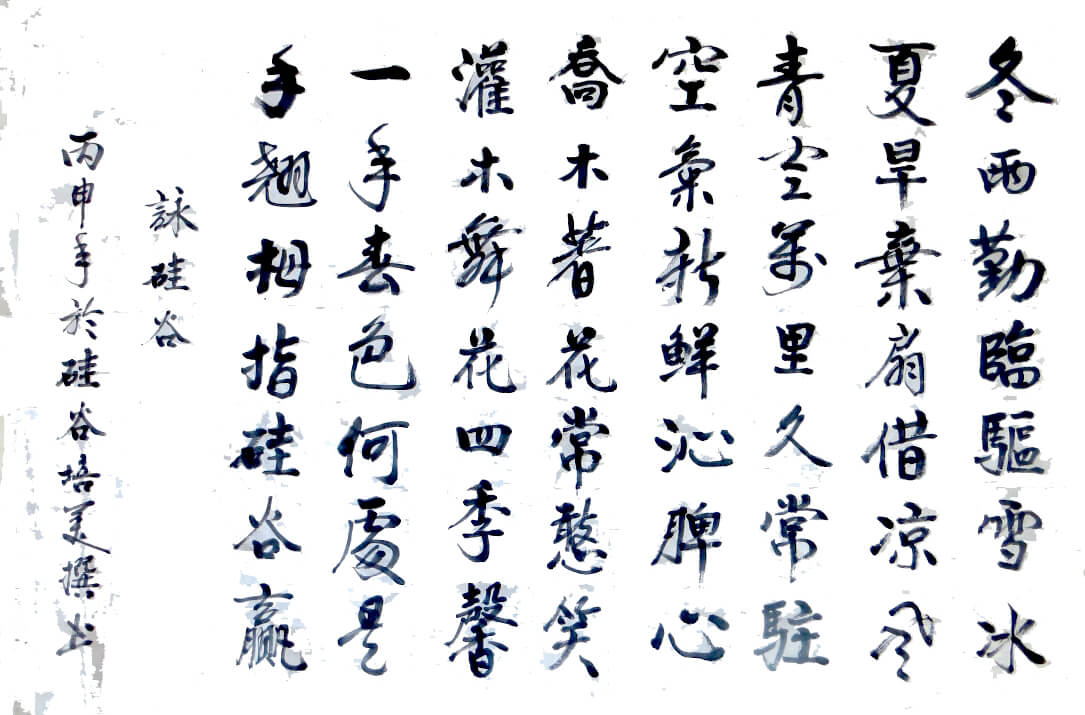 冬雨勤臨驅雪冰
夏旱棄扇借凉風
青空萬里久常駐
空氣新鮮沁脾心
喬木著花常憨笑
灌木舞花四季馨
一年春色何處是
手翹拇指硅谷贏
詠硅谷
丙申年於硅谷培美撰上